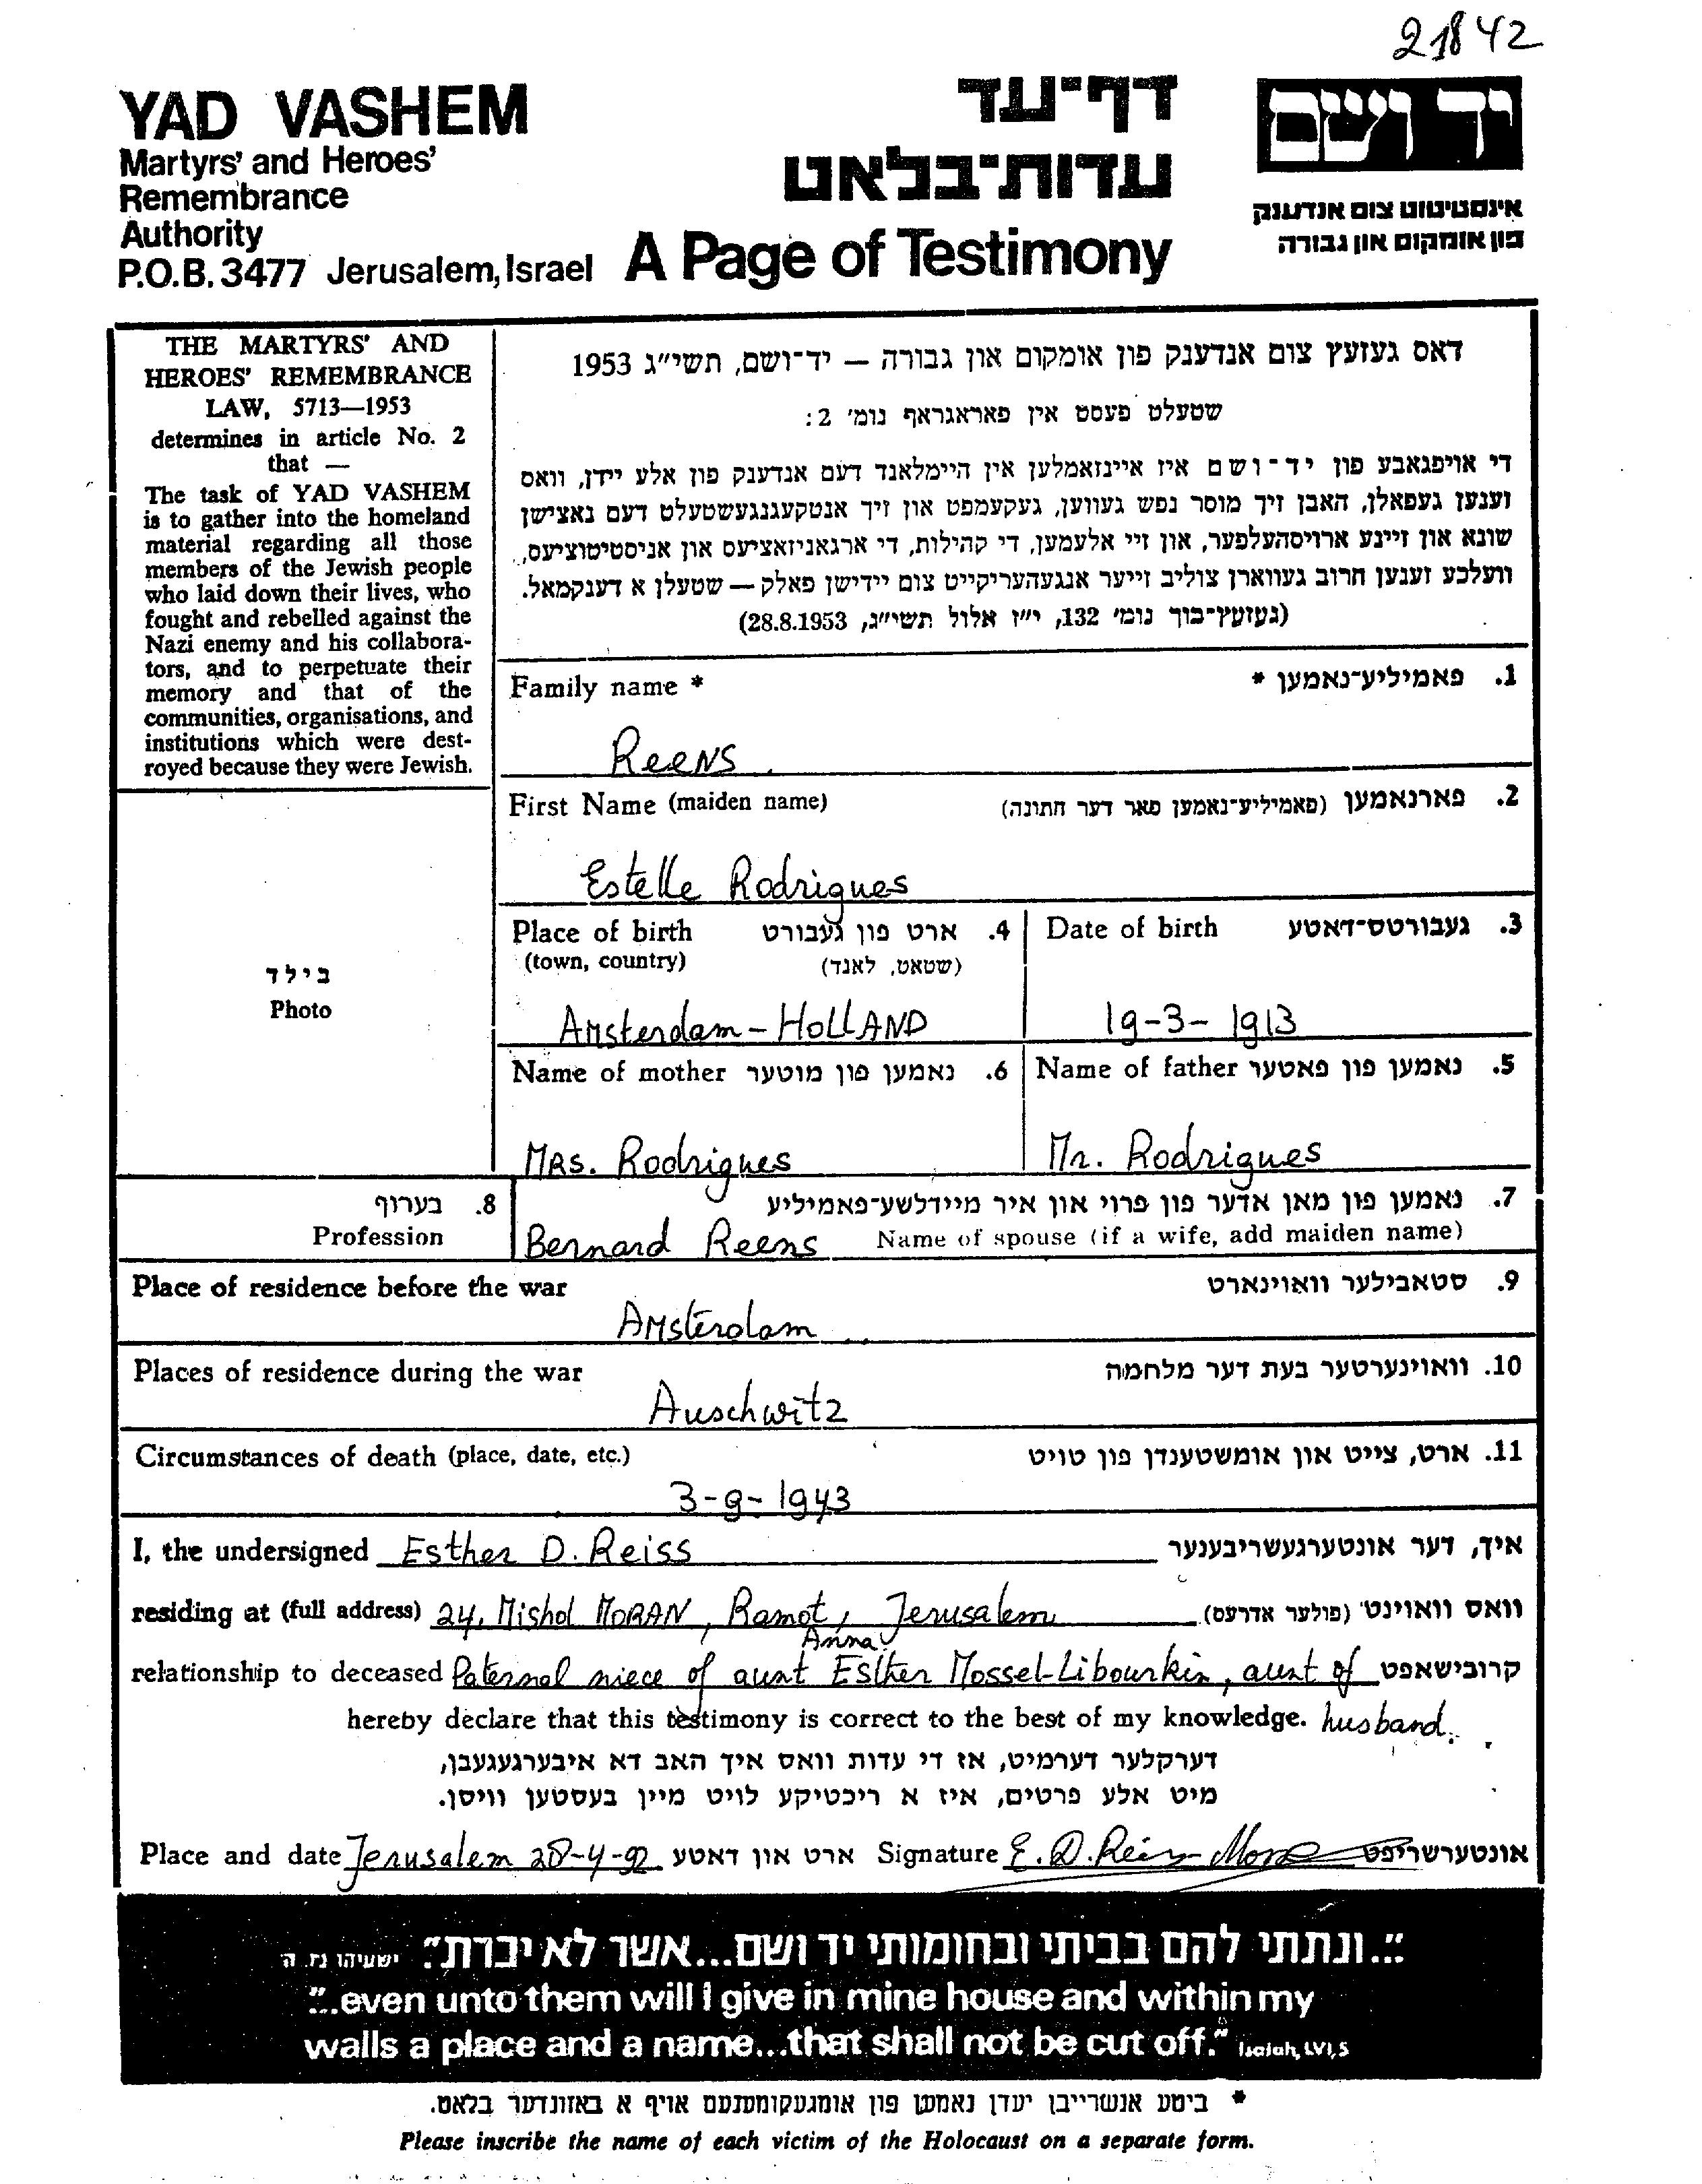 21842
YAD VASHEM
Martyrs' and Heroes'
Remembrance
Authority
P.O.B. 3477 Jerusalem, Israel
דף־עד
עדות־בלאט
A Page of Testimony
יד ושם
אינסטיטוט צום אנדענק
פון אומקום און גבורה
THE MARTYRS' AND
HEROES' REMEMBRANCE
LAW, 5713—1953
determines in article No. 2
that —
The task of YAD VASHEM
is to gather into the homeland
material regarding all those
members of the Jewish people
who laid down their lives, who
fought and rebelled against the
Nazi enemy and his collabora-
tors, and to perpetuate their
memory and that of the
communities, organisations, and
institutions which were dest-
royed because they were Jewish.
דאס געזעץ צום אנדענק פון אומקום און גבורה — יד־ושם, תשי״ג 1953
שטעלט פעסט אין פאראגראף נומ׳ 2:
די אויפגאבע פון יד־ושם איז איינזאמלען אין היימלאנד דעם אנדענק פון אלע יידן, וואס
זענען געפאלן, האבן זיך מוסר נפש געווען, געקעמפט און זיך אנטקעגנגעשטעלט דעם נאצישן
שונא און זיינע ארויסהעלפער, און זיי אלעמען, די קהילות, די ארגאניזאציעס און אניסטיטוציעס,
וועלכע זענען חרוב געווארן צוליב זייער אנגעהעריקייט צום יידישן פאלק — שטעלן א דענקמאל.
(געזעץ־בוך נומ׳ 132, י״ז אלול תשי״ג, 28.8.1953)
Family name * פאמיליע־נאמען * .1
Reens
First Name (maiden name) פארנאמען (פאמיליע־נאמען פאר דער חתונה) .2
Estelle Rodrigues
Place of birth ארט פון געבורט .4
(town, country) (שטאט, לאנד)
Amsterdam - HOLLAND
Date of birth געבורטס־דאטע .3
19-3-1913
Name of mother נאמען פון מוטער .6
Mrs. Rodrigues
Name of father נאמען פון פאטער .5
Mr. Rodrigues
בילד
Photo
בערוף .8
Profession
נאמען פון מאן אדער פון פרוי און איר מיידלשע־פאמיליע .7
Bernard Reens Name of spouse (if a wife, add maiden name)
Place of residence before the war סטאבילער וואוינארט .9
Amsterdam
Places of residence during the war וואוינערטער בעת דער מלחמה .10
Auschwitz
Circumstances of death (place, date, etc.) ארט, צייט און אומשטענדן פון טויט .11
3-9-1943
I, the undersigned Esther D. Reiss איך, דער אונטערגעשריבענער
residing at (full address) 24, Mishol MORAN, Ramot, Jerusalem וואס וואוינט (פולער אדרעס)
Anna
relationship to deceased Paternal niece of aunt Esther Mossel-Libourkin, aunt of קרובישאפט
hereby declare that this testimony is correct to the best of my knowledge. husband.
דערקלער דערמיט, אז די עדות וואס איך האב דא איבערגעגעבן,
מיט אלע פרטים, איז א ריכטיקע לויט מיין בעסטען וויסן.
Place and date Jerusalem 28-4-92 ארט און דאטע Signature E. D. Reiss אונטערשריפט
"...ונתתי להם בביתי ובחומותי יד ושם...אשר לא יכרת" ישעיהו נו ה
"...even unto them will I give in mine house and within my
walls a place and a name...that shall not be cut off." Isaiah, LVI, 5
* ביטע אנשרייבן יעדן נאמען פון אומגעקומענעם אויף א באזונדער בלאט.
Please inscribe the name of each victim of the Holocaust on a separate form.